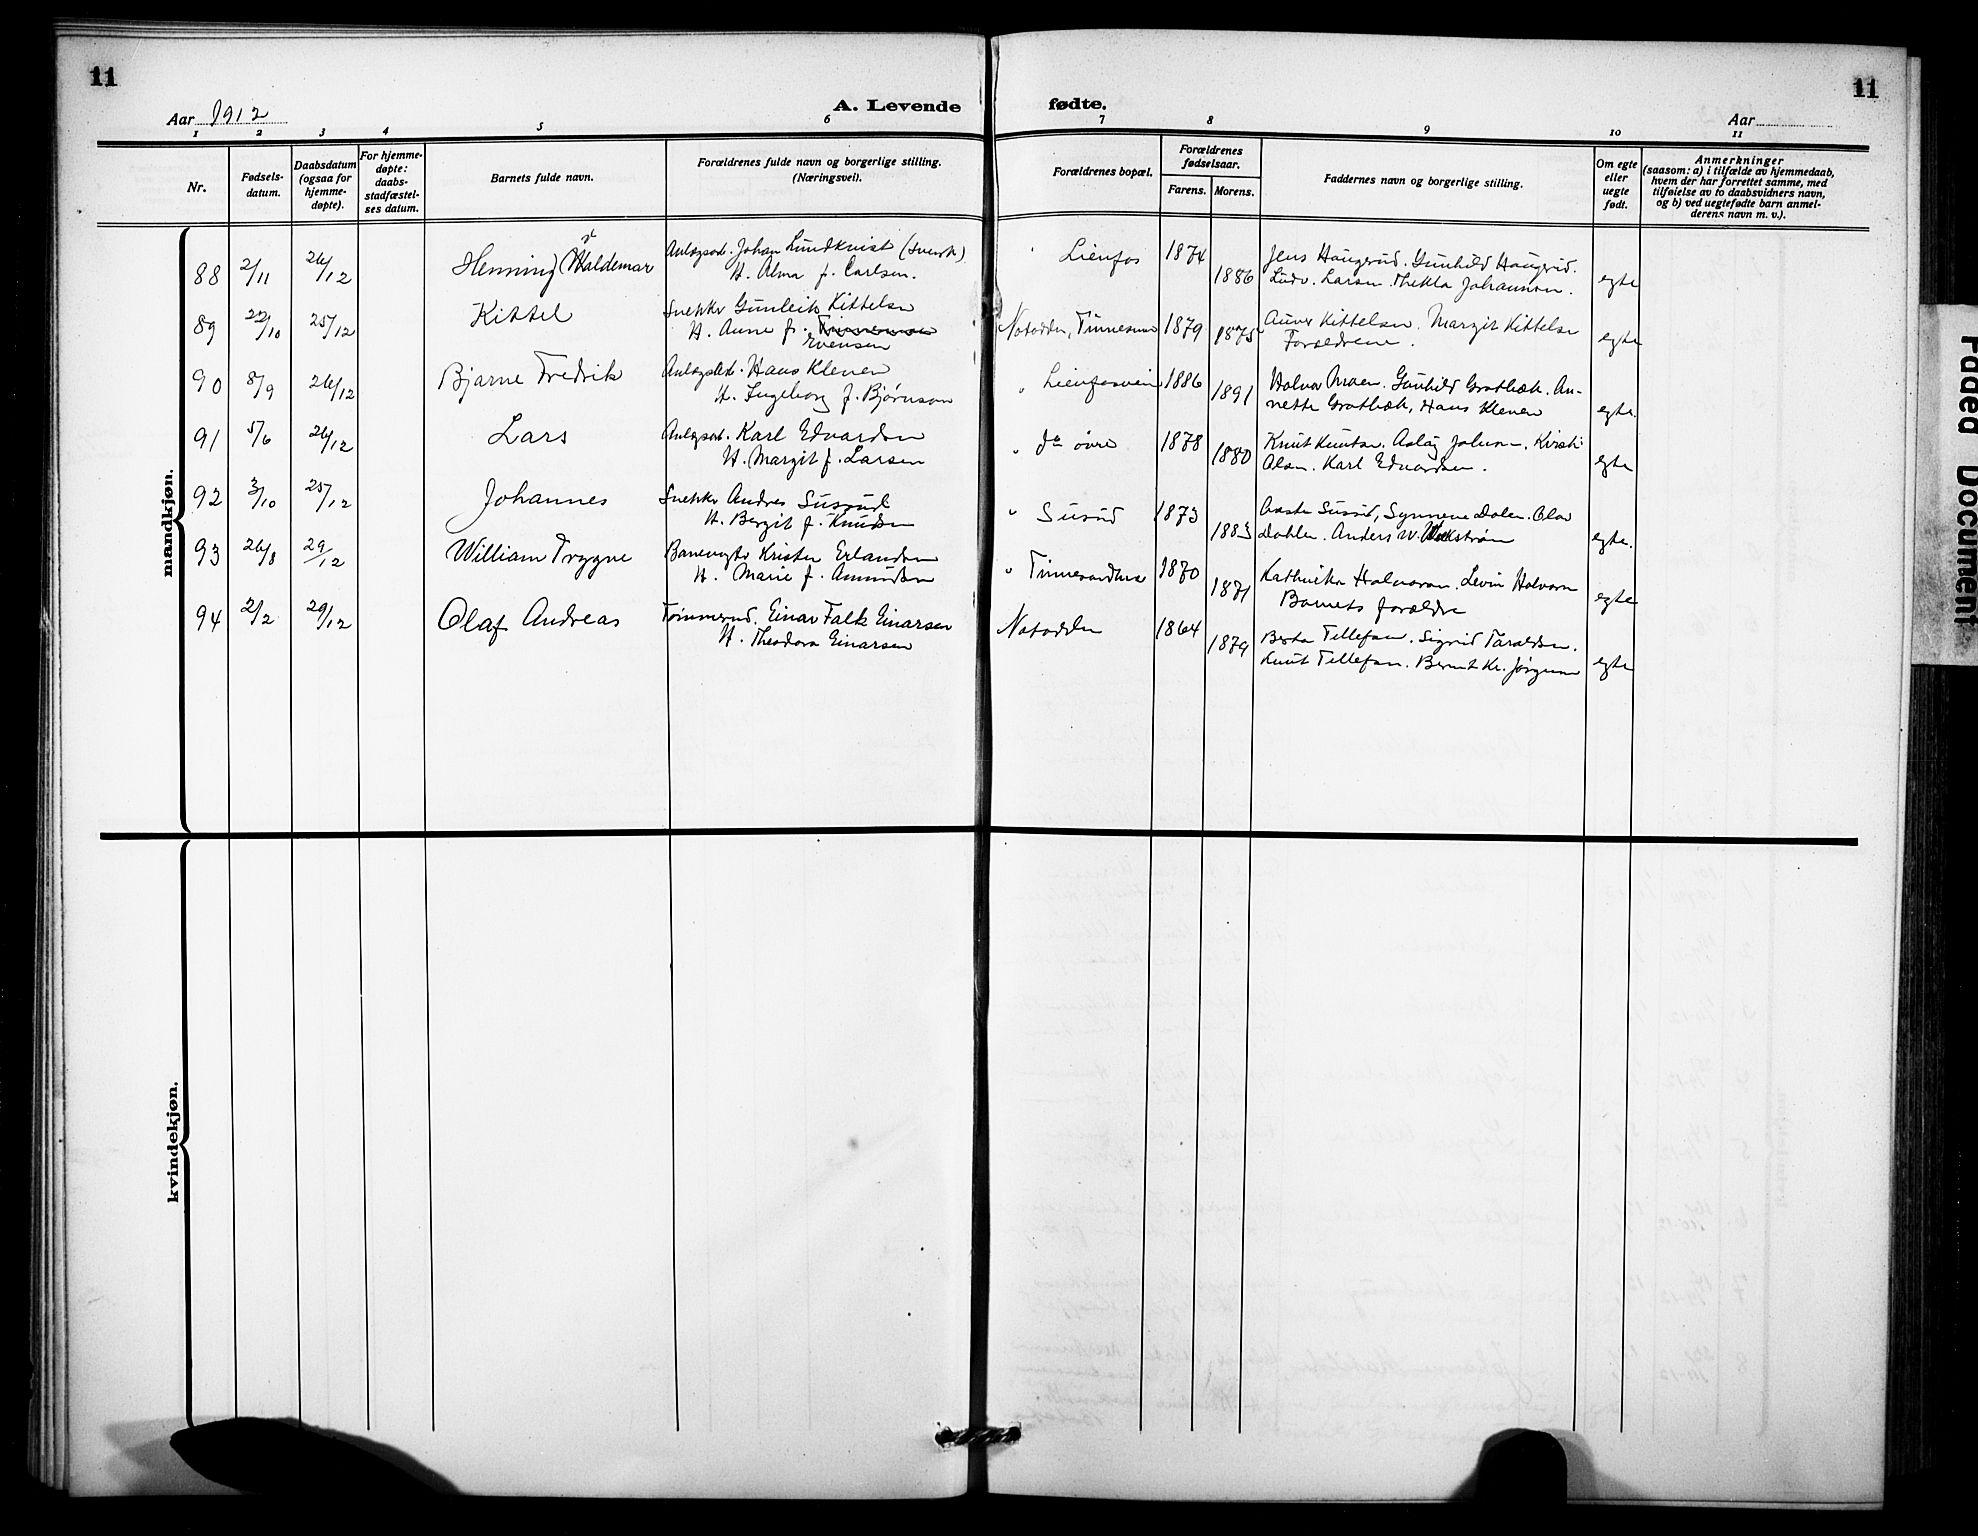 11
11
Aar 1912
A. Levende
fødte.
Aar
1 2 3 4 5 6 7 8 9 10 11
Nr.
Fødsels-
datum.
Daabsdatum
(ogsaa for
hjemme-
døpte).
For hjemme-
døpte:
daabs-
stadfæstel-
ses datum.
Barnets fulde navn.
Forældrenes fulde navn og borgerlige stilling.
(Næringsvei).
Forældrenes bopæl.
Forældrenes
fødselsaar.
Farens. Morens.
Faddernes navn og borgerlige stilling.
Om egte
eller
uegte
født.
Anmerkninger
(saasom: a) i tilfælde av hjemmedaab,
hvem der har forrettet samme, med
tilføielse av to daabsvidners navn,
og b) ved uegtefødte barn anmel-
derens navn m. v.).
mandkjøn.
88 2/11 26/12 Henning Waldemar Johan Lundkvist (svensk) Lienfos 1874 Jens Haugerud. Gunhild Haugerud.
H. Alma f. Carlsen. 1886 Ludv. Larsen. Thekla Johannsen. egte
89 22/10 25/12 Kittel Snekker Gunleik Kittelsen Notodden, Tinnesmoen 1879 Kittelsen. Margit Kittelsen
H. Anne f. Evensen 1875 Forældrene. egte
90 8/9 26/12 Bjarne Fredrik Hans Kleven " Lienfosveien 1886 Halvor Moen. Gunhild Grotbæk. An-
H. Ingeborg f. Bjørnson 1891 nette Grotbæk, Hans Kleven egte.
91 5/6 26/12 Lars Karl Edvardsen " do øvre 1878 Knut Knutsen. Aslaug Johnsen. Kirsti
H. Margit f. Larsen 1880 Olsen. Karl Edvardsen. egte
92 3/10 25/12 Johannes Snekker Andres Susrud " Susrud 1873 Aaste Susrud, Synneve Dalen. Olav
H. Bergit f. Knudsen 1883 Dahlen. Anders W. egte.
93 26/8 29/12 William Trygve Banevogter Krister Erlandsen " 1870 Kathrike Halvorsen. Levin Halvorsen
H. Marie f. Amundsen 1871 Barnets forældre egte
94 2/2 29/12 Olaf Andreas Tømmermd. Einar Falk Einarsen Notodden 1864 Berta Tellefsen. Sigrid Taraldsen.
H. Theodora Einarsen 1879 Knut Tellefsen. Bernt Kr. Jørgensen egte
kvindekjøn.
Faded Document